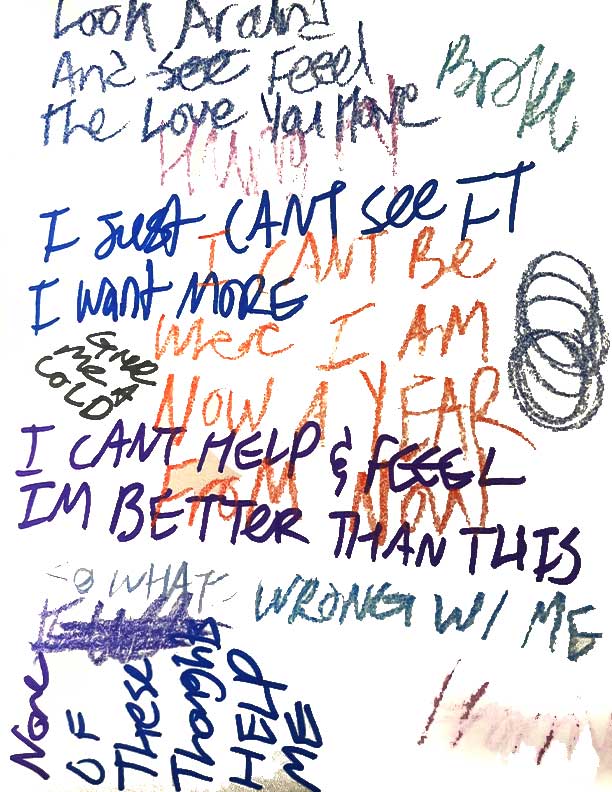 Look Around
And see Feeel
the Love You Have
I Just CANT see IT
I CANT Be
I want MORE
Were I AM
Give
me
GOLD
NOW A YEAR
I CANT HELP & FEEEL
FROM NOW
IM BETTER THAN THIS
So WHAT
WRONG W/ ME
None
OF
THESE
Thoughts
HELP
ME